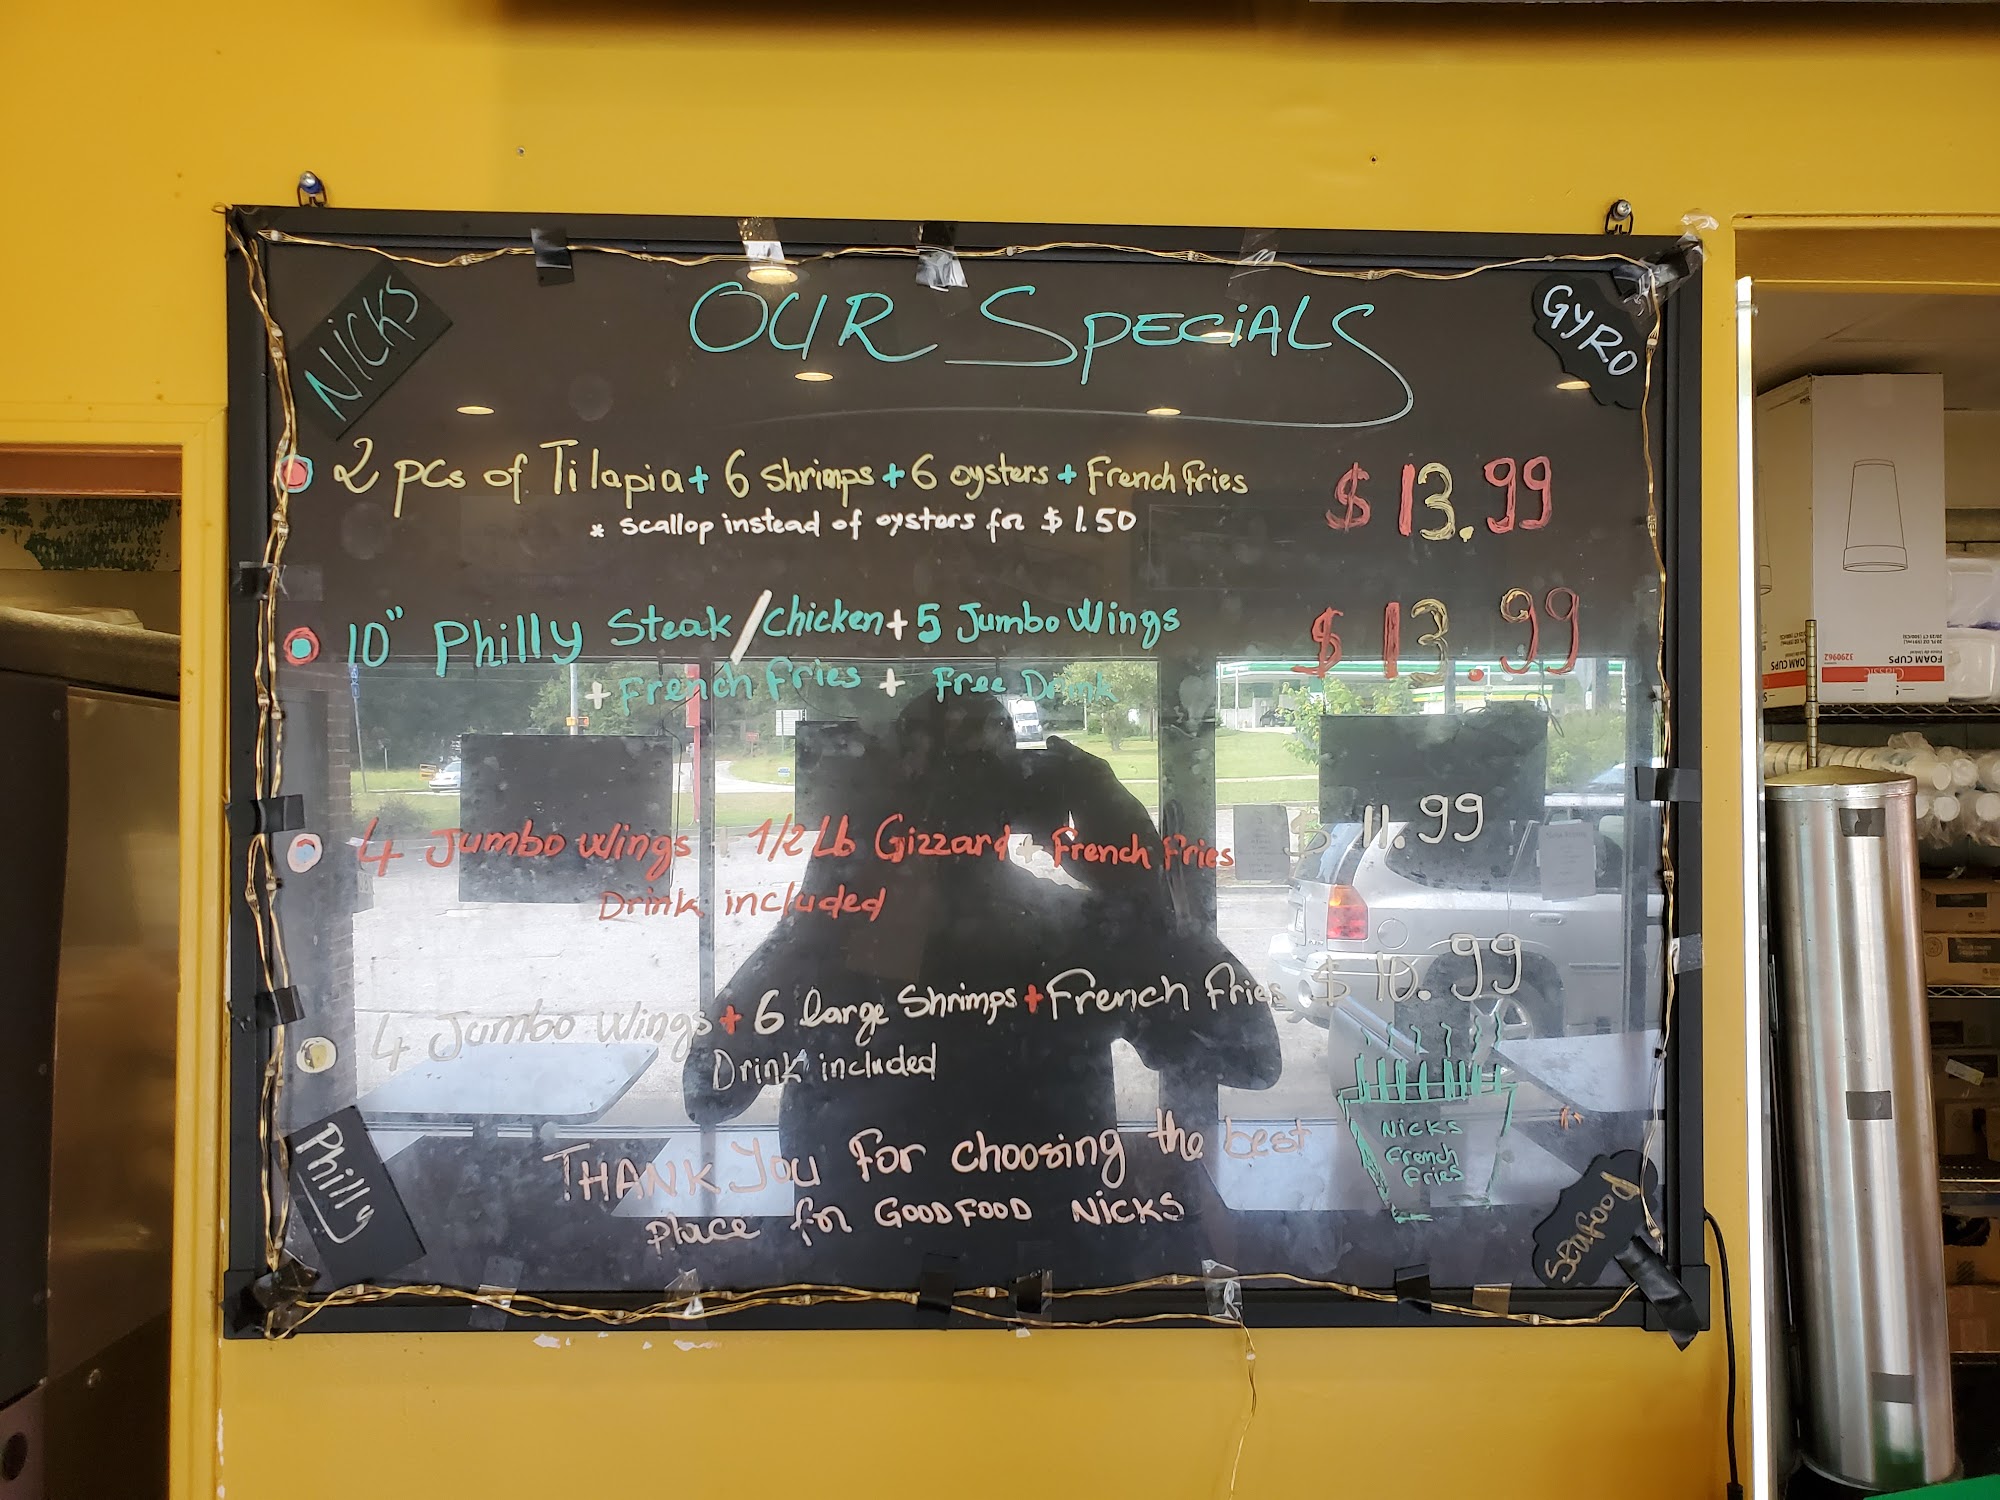 NICKS
OUR SPECiALS
GYRO
2 pcs of Tilapia + 6 shrimps + 6 oysters + French Fries $ 13.99
* scallop instead of oysters for $ 1.50
10" Philly Steak / chicken + 5 Jumbo Wings $ 13.99
+ French Fries + Free Drink
4 Jumbo Wings + 1/2 Lb Gizzard + French Fries $ 11.99
Drink included
4 Jumbo Wings + 6 large Shrimps + French Fries $ 10.99
Drink included
THANK YOU For choosing the best
place for GOOD FOOD NiCKS
NiCKS
French
Fries
Philly
Seafood
FOAM CUPS
3290962
FOAM CUPS